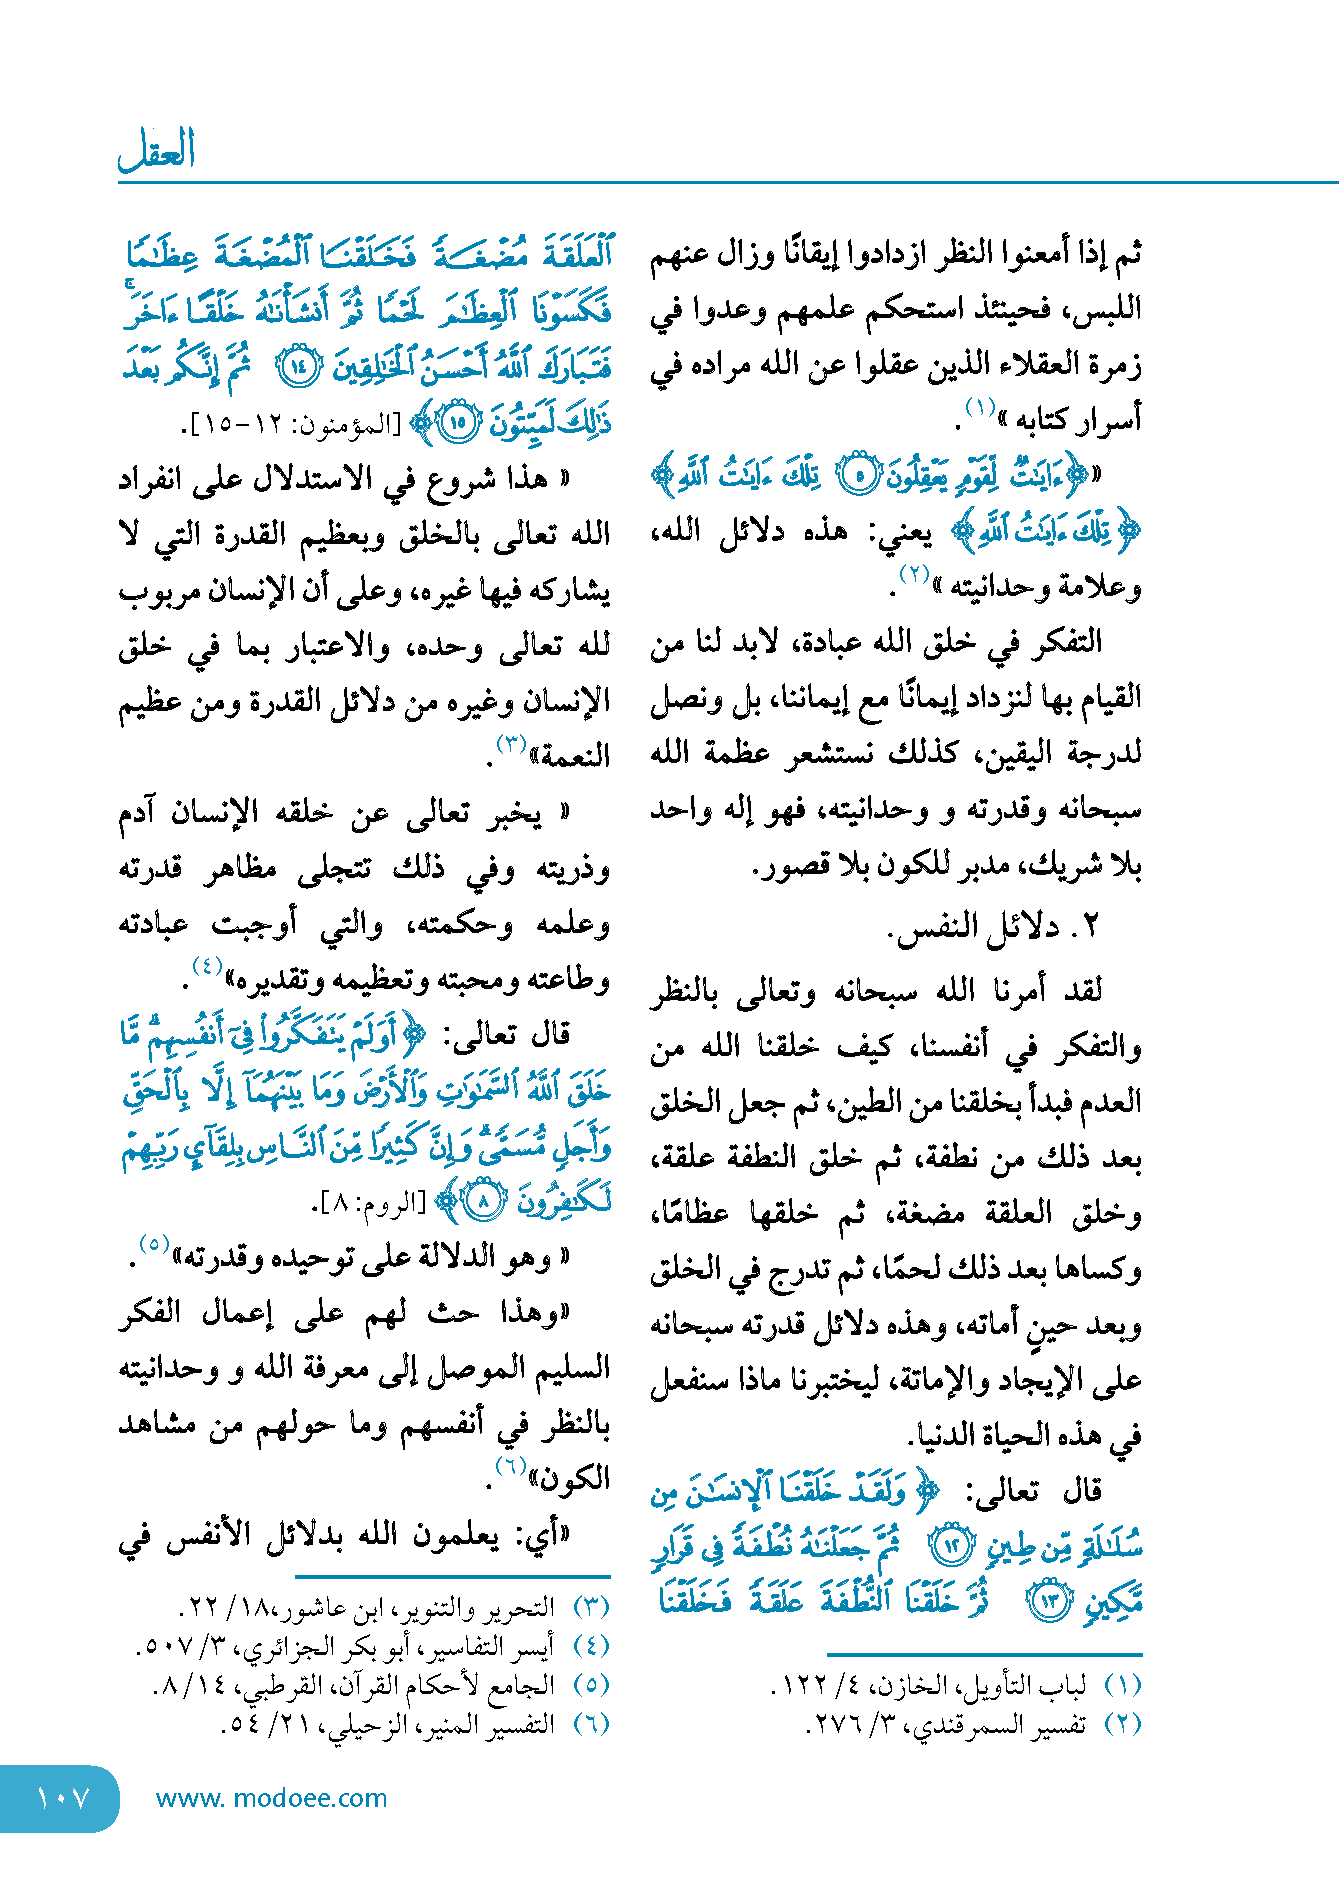 العقل
ثم إذا أمعنوا النظر ازدادوا إيقانًا وزال عنهم
اللبس، فحينئذ استحكم علمهم وعدوا في
زمرة العقلاء الذين عقلوا عن الله مراده في
أسرار كتابه »(١).
«﴿ءَايَٰتٞ لِّقَوۡمٖ يَعۡقِلُونَ ٥ تِلۡكَ ءَايَٰتُ ٱللَّهِ﴾
﴿تِلۡكَ ءَايَٰتُ ٱللَّهِ﴾ يعني: هذه دلائل الله،
وعلامة وحدانيته »(٢).
التفكر في خلق الله عبادة، لابد لنا من
القيام بها لنزداد إيمانًا مع إيماننا، بل ونصل
لدرجة اليقين، كذلك نستشعر عظمة الله
سبحانه وقدرته و وحدانيته، فهو إله واحد
بلا شريك، مدبر للكون بلا قصور.
٢. دلائل النفس.
لقد أمرنا الله سبحانه وتعالى بالنظر
والتفكر في أنفسنا، كيف خلقنا الله من
العدم فبدأ بخلقنا من الطين، ثم جعل الخلق
بعد ذلك من نطفة، ثم خلق النطفة علقة،
وخلق العلقة مضغة، ثم خلقها عظامًا،
وكساها بعد ذلك لحمًا، ثم تدرج في الخلق
وبعد حينٍ أماتها، وهذه دلائل قدرته سبحانه
على الإيجاد والإماتة، ليختبرنا ماذا سنفعل
في هذه الحياة الدنيا.
قال تعالى: ﴿وَلَقَدۡ خَلَقۡنَا ٱلۡإِنسَٰنَ مِن
سُلَٰلَةٖ مِّن طِينٖ ١٢ ثُمَّ جَعَلۡنَٰهُ نُطۡفَةٗ فِي قَرَارٖ
مَّكِينٖ ١٣ ثُمَّ خَلَقۡنَا ٱلنُّطۡفَةَ عَلَقَةٗ فَخَلَقۡنَا
(١) لباب التأويل، الخازن، ٤/ ١٢٢.
(٢) تفسير السمرقندي، ٣/ ٢٧٦.
ٱلۡعَلَقَةَ مُضۡغَةٗ فَخَلَقۡنَا ٱلۡمُضۡغَةَ عِظَٰمٗا
فَكَسَوۡنَا ٱلۡعِظَٰمَ لَحۡمٗا ثُمَّ أَنشَأۡنَٰهُ خَلۡقًا ءَاخَرَۚ
فَتَبَارَكَ ٱللَّهُ أَحۡسَنُ ٱلۡخَٰلِقِينَ ١٤ ثُمَّ إِنَّكُم بَعۡدَ
ذَٰلِكَ لَمَيِّتُونَ ١٥﴾ [المؤمنون: ١٢-١٥].
« هذا شروع في الاستدلال على انفراد
الله تعالى بالخلق وبعظيم القدرة التي لا
يشاركه فيها غيره، وعلى أن الإنسان مربوب
لله تعالى وحده، والاعتبار بما في خلق
الإنسان وغيره من دلائل القدرة ومن عظيم
النعمة»(٣).
« يخبر تعالى عن خلقه الإنسان آدم
وذريته وفي ذلك تتجلى مظاهر قدرته
وعلمه وحكمته، والتي أوجبت عبادته
وطاعته ومحبته وتعظيمه وتقديره»(٤).
قال تعالى: ﴿أَوَلَمۡ يَتَفَكَّرُواْ فِيٓ أَنفُسِهِمۗ مَّا
خَلَقَ ٱللَّهُ ٱلسَّمَٰوَٰتِ وَٱلۡأَرۡضَ وَمَا بَيۡنَهُمَآ إِلَّا بِٱلۡحَقِّ
وَأَجَلٖ مُّسَمّٗىۗ وَإِنَّ كَثِيرٗا مِّنَ ٱلنَّاسِ بِلِقَآيِٕ رَبِّهِمۡ
لَكَٰفِرُونَ ٨﴾ [الروم: ٨].
« وهو الدلالة على توحيده وقدرته»(٥).
«وهذا حث لهم على إعمال الفكر
السليم الموصل إلى معرفة الله و وحدانيته
بالنظر في أنفسهم وما حولهم من مشاهد
الكون»(٦).
«أي: يعلمون الله بدلائل الأنفس في
(٣) التحرير والتنوير، ابن عاشور،١٨/ ٢٢.
(٤) أيسر التفاسير، أبو بكر الجزائري، ٣/ ٥٠٧.
(٥) الجامع لأحكام القرآن، القرطبي، ١٤/ ٨.
(٦) التفسير المنير، الزحيلي، ٢١/ ٥٤.
www. modoee.com
١٠٧